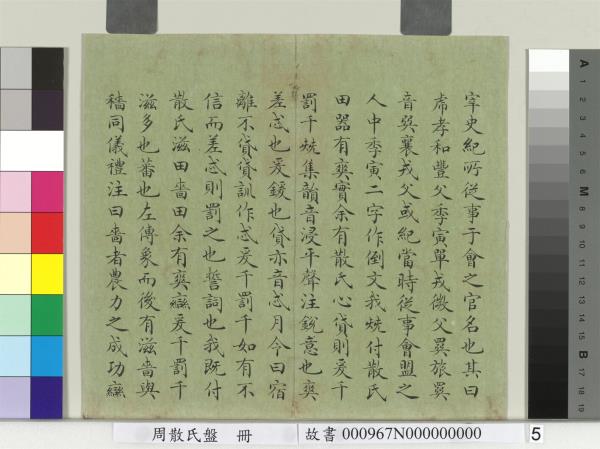 宰史紀所從事于會之官名也其曰
虎孝和豐父季寅單戎微父旅
音襄戎父或紀當時從事會盟之
人中季寅二字作倒文我付散氏
田器有爽實余有散氏心貸則爰千
罰千集韻音浸平聲注銳意也爽
差忒也爰鍰也貸亦音忒月令曰宿
離不貸貸訓作忒爰千罰千如有不
信而差忒則罰之也誓詞也我既付
散氏滋田嗇田余有爽䜌爰千罰千
滋多也蕃也左傳象而後有滋嗇與
穡同儀禮注曰嗇者農力之成功䜌
周散氏盤 冊 故書 000967N000000000 5
A 1 2 3 4 5 6 M 8 9 10 11 12 13 14 15 B 17 18 19